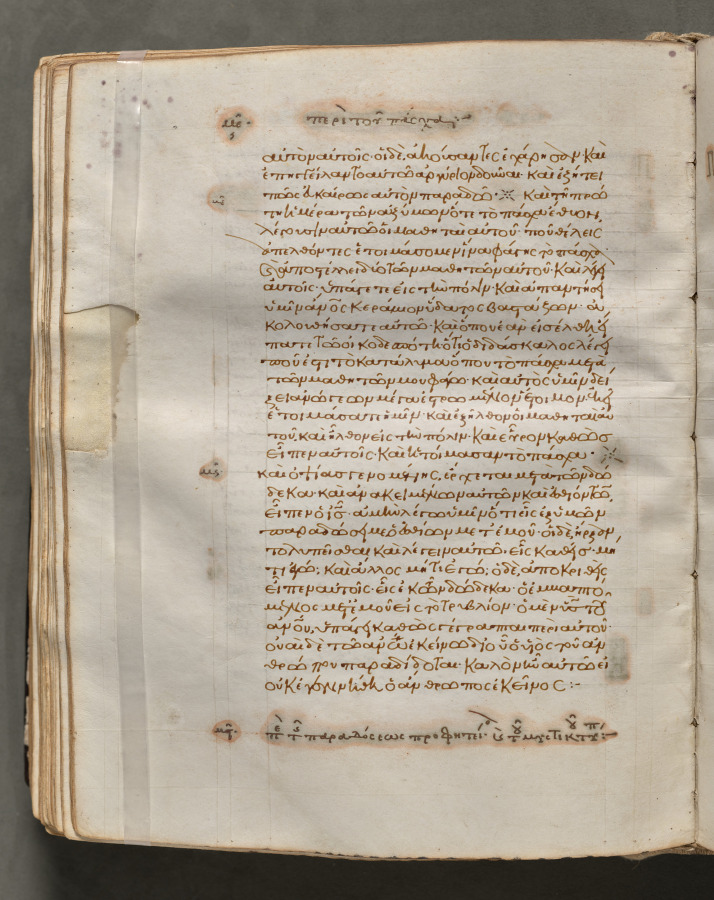 με· περὶ τοῦ πάσχα:
αὐτὸν αὐτοῖς· οἱ δὲ, ἀκούσαντες ἐχάρησαν· καὶ
ἐπηγγείλαντο αὐτῶ ἀργύριον δοῦναι· καὶ ἐζήτει
πῶς εὐκαίρως αὐτὸν παραδῶ· ※ καὶ τῆ πρώ
τη ἡμέρα τῶν ἀζύμων ὅτε τὸ πάσχα ἔθυον,
λέγουσιν αὐτῶ οἱ μαθηταὶ αὐτοῦ· ποῦ θέλεις
ἀπελθόντες ἑτοιμάσομεν ἵνα φάγης τὸ πάσχα·
καὶ ἀποστέλλει δύο τῶν μαθητῶν αὐτοῦ· καὶ λέγει
αὐτοῖς· ὑπάγετε εἰς τὴν πόλιν· καὶ ἀπαντήσει
ὑμῖν ἄν̅ο̅ς κεράμιον ὕδατος βαστάζων· ἀ
κολουθήσατε αὐτῶ· καὶ ὅπου ἐὰν εἰσέλθη εἴ
πατε τῶ οἰκοδεσπότη ὅτι ὁ διδάσκαλος λέγει
ποῦ ἐστὶ τὸ κατάλυμα ὅπου τὸ πάσχα μετὰ
τῶν μαθητῶν μου φάγω· καὶ αὐτὸς ὑμῖν δεί
ξει ἀνώγεων μέγα ἐστρωμένον ἕτοιμον· ἐκεῖ
ἑτοιμάσατε ἡμῖν· καὶ ἐξῆλθον οἱ μαθηταὶ αὐ
τοῦ, καὶ ἦλθον εἰς τὴν πόλιν· καὶ εὗρον καθὼς
εἶπεν αὐτοῖς· καὶ ἡτοίμασαν τὸ πάσχα· ※
καὶ ὀψίας γενομένης, ἔρχεται μετὰ τῶν δώ
δεκα· καὶ ἀνακειμένων αὐτῶν καὶ ἐσθιόντων,
εἶπεν ὁ ι̅ς̅· ἀμὴν λέγω ὑμῖν ὅτι εἷς ἐξ ὑμῶν
παραδώσει με ὁ ἐσθίων μετ' ἐμοῦ· οἱ δὲ, ἤρξαν
το λυπεῖσθαι καὶ λέγειν αὐτῶ· εἷς καθεῖς· μή
τι ἐγώ; καὶ ἄλλος μή τι ἐγώ; ὁ δὲ, ἀποκριθεὶς
εἶπεν αὐτοῖς· εἷς ἐκ τῶν δώδεκα· ὁ ἐμβαπτό
μενος μετ' ἐμοῦ εἰς τὸ τρυβλίον· ὁ μὲν υ̅ς̅ τοῦ
ἀν̅ο̅υ, ὑπάγει καθὼς γέγραπται περὶ αὐτοῦ·
οὐαὶ δὲ τῶ ἀν̅ω̅ ἐκείνω δι' οὗ ὁ υἱὸς τοῦ ἀν
θρώπου παραδίδοται· καλὸν ἦν αὐτῶ εἰ
οὐκ ἐγεννήθη ὁ ἄνθρωπος ἐκεῖνος:-
παραδόσεως προφητεί